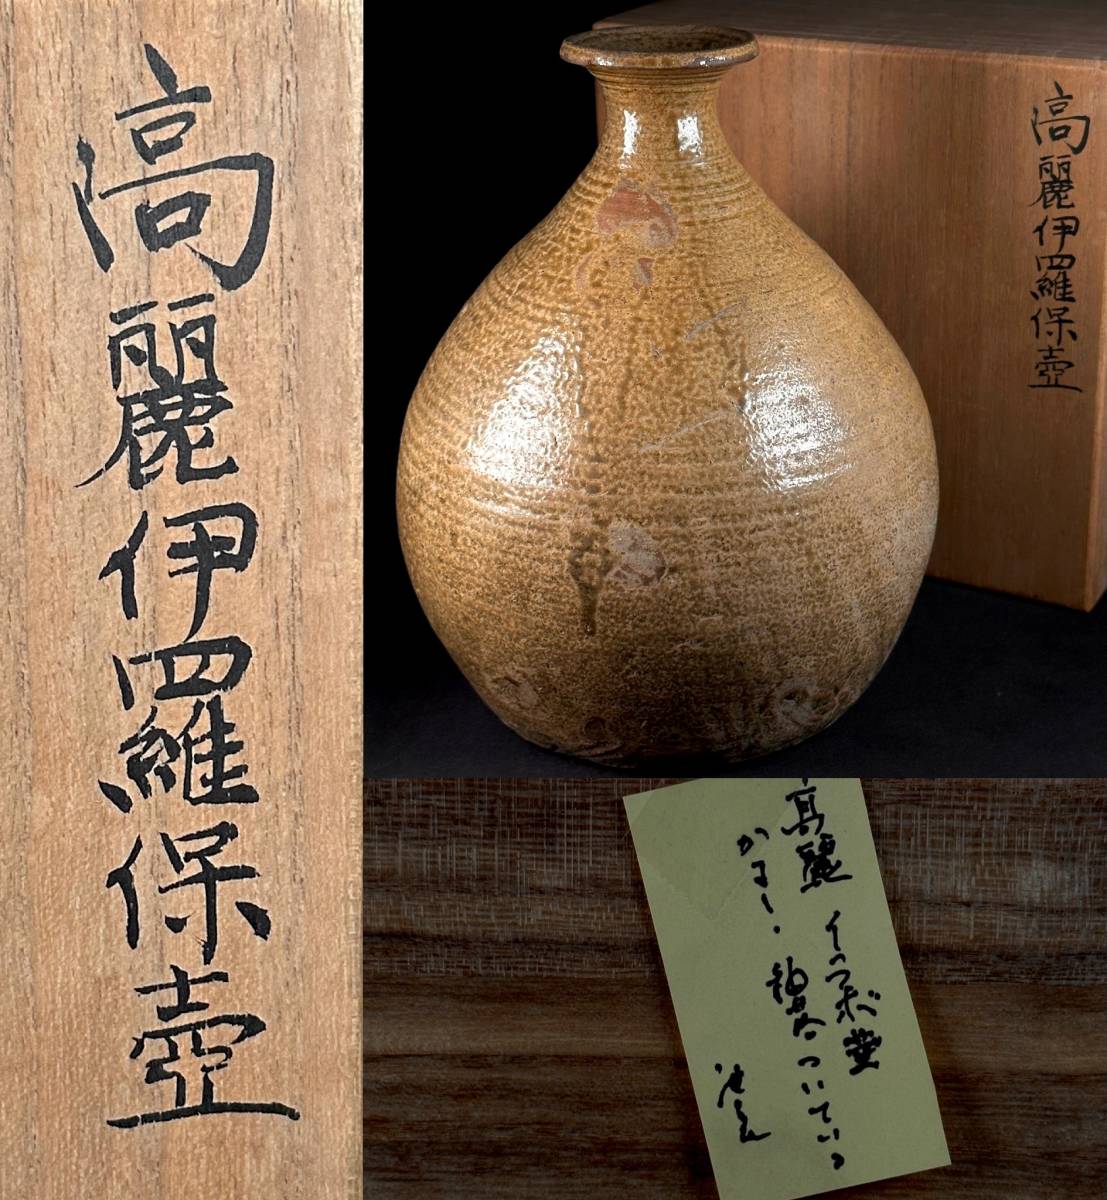 高麗伊羅保壺
高麗伊羅保壺
高麗イラボ壷
ついている